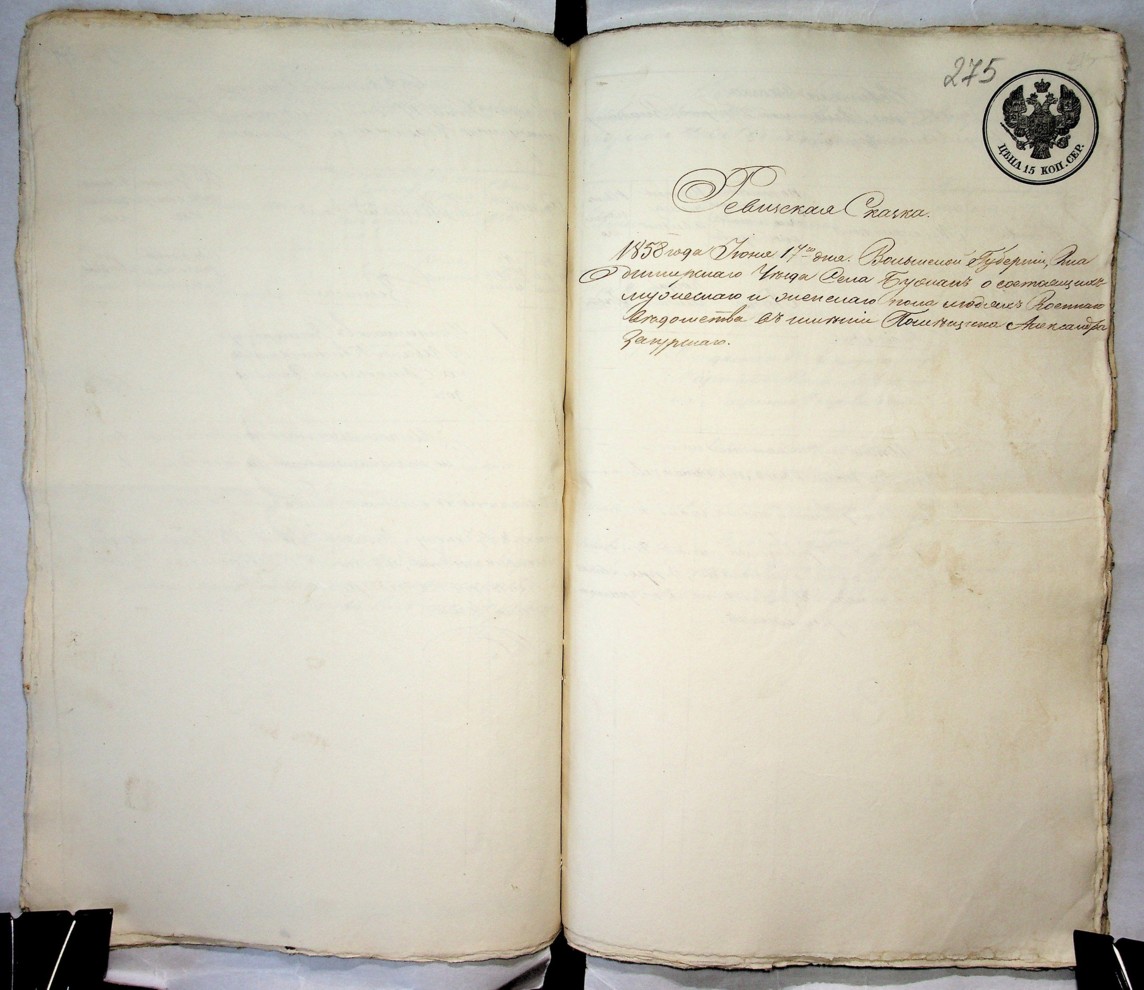 275
ЦѢНА 15 КОП. СЕР.
Ревизская Сказка.
1858 года Июня 17го дня. Волынской Губерніи, Вла
димирскаго Уѣзда Села о состоящихъ
мужескаго и женскаго пола людяхъ Военнаго
Вѣдомства въ имѣніи Помѣщика Александра
Загурскаго.